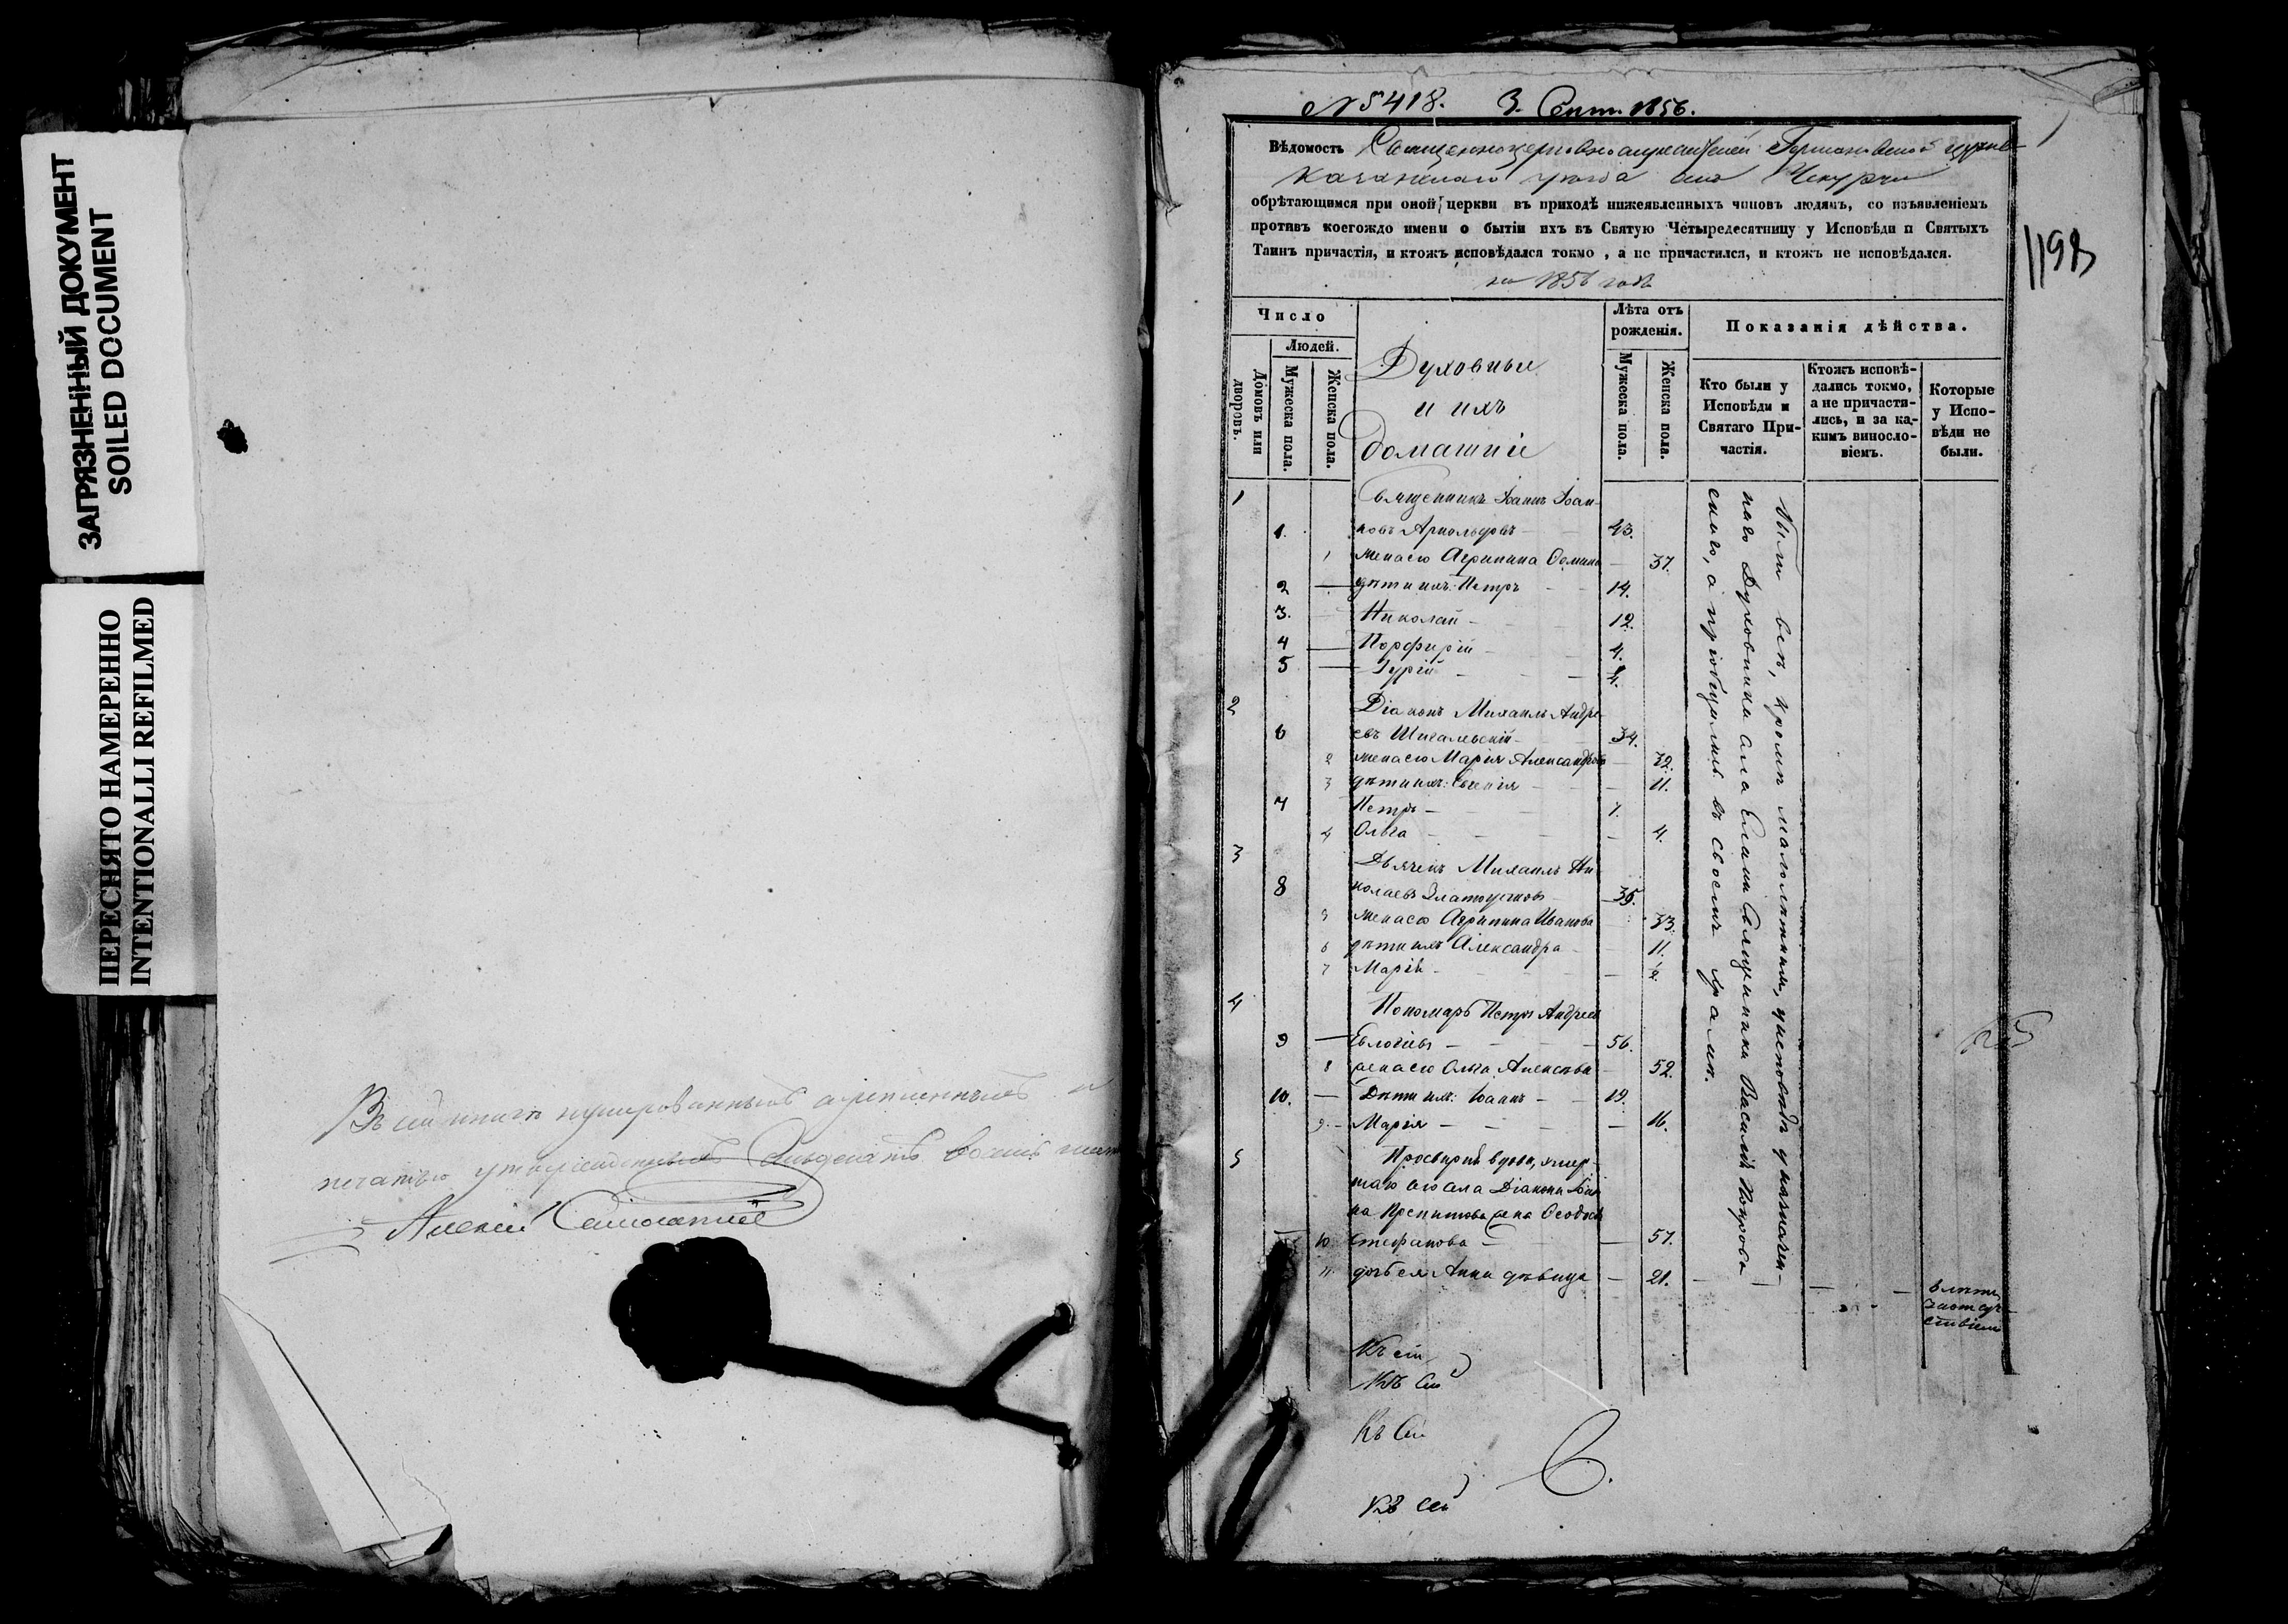 ЗАГРЯЗНЕННЫЙ ДОКУМЕНТ
SOILED DOCUMENT
ПЕРЕСНЯТО НАМЕРЕННО
INTENTIONALLI REFILMED
Въ сей книгѣ нумерованныхъ скрѣпленныхъ и
печатью утвержденныхъ восемь
Алексій
№ 5418. 3. Сент. 1856.
Вѣдомость церкви
Казанскаго уѣзда села Чекурчи
обрѣтающимся при оной церкви въ приходѣ нижеявленныхъ чиновъ людямъ, со изъявленіемъ
противъ коегождо имени о бытіи ихъ въ Святую Четыредесятницу у Исповѣди и Святыхъ
Таинъ причастія, и ктожъ исповѣдался токмо, а не причастился, и ктожъ не исповѣдался.
на 1856 годъ
1198
Число
Людей.
Домовъ или дворовъ.
Мужеска пола.
Женска пола.
Духовные
и ихъ
домашніе
Лѣта отъ рожденія.
Мужеска пола.
Женска пола.
Показанія дѣйства.
Кто были у Исповѣди и Святаго Причастія.
Ктожъ исповѣдались токмо, а не причастились, и за какимъ винословіемъ.
Которые у Исповѣди не были.
1 Священникъ Іоаннъ Іоан-
1. новъ Арнольдовъ 43.
1 жена его Агрипина 37.
2 дѣти ихъ: Петръ 14.
3. Николай 12.
4 Порфирій 4.
5 Гурій
2 Діаконъ Михаилъ Андре-
6 евъ Шигалевскій 34.
2 жена его Марія Александрова 32.
3 дѣти ихъ: Евгенія 11.
7 Петръ 7.
4 Ольга 4.
3 Дьячекъ Михаилъ Ни-
8 колаевъ Златоустовъ 35.
5 жена его Агрипина Иванова 33.
6 дѣти ихъ Александра 11.
7 Марія
4 Пономарь Петръ Андреевъ
9 Евлогіевъ 56.
8 жена его Ольга Алексѣева 52.
10. Дѣти ихъ: Іоаннъ 19.
9. Марія 16.
5 Просвирня вдова, умер-
шаго сего села Діакона
жена Ѳеодосія
10 Стефанова 57.
11 дочь ея Анна дѣвица 21.
Были всѣ, кромѣ малолѣтнихъ, у исповѣди у назначен-
наго Духовника села Елани Священника Василія Покров-
скаго, а пріобщились въ своемъ храмѣ.
Къ сей
Къ сей
Къ сей
Къ сей